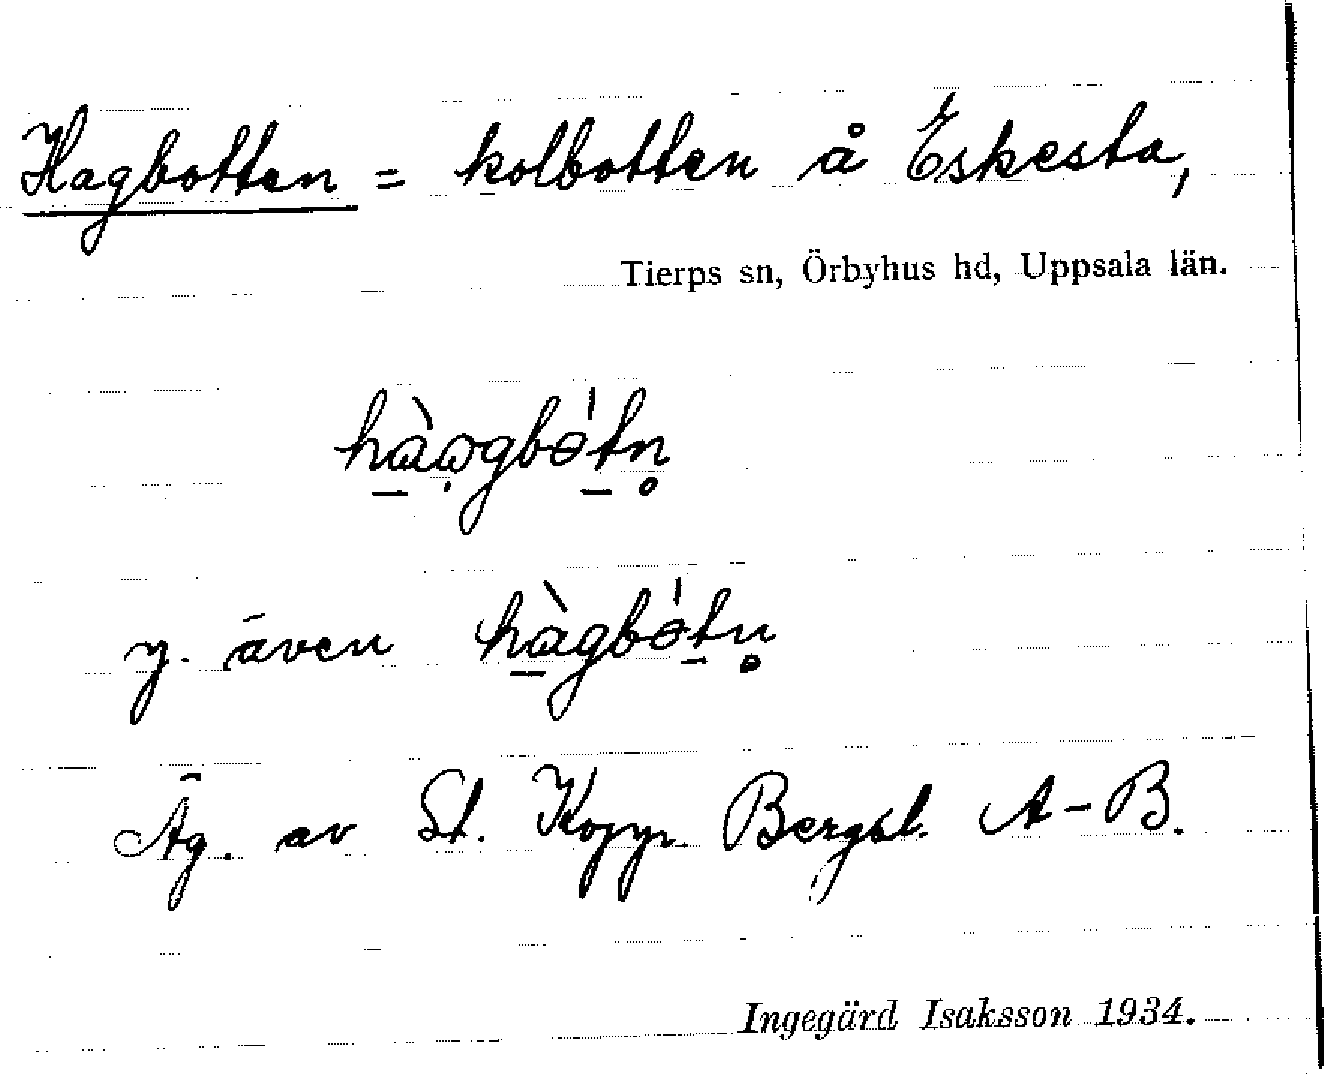 Hagbotten = kolbotten å Eskesta,
Tierps sn, Örbyhus hd, Uppsala län.
y. även
Äg. av St. Koppr. Bergsl. A-B.
Ingegärd Isaksson 1934.